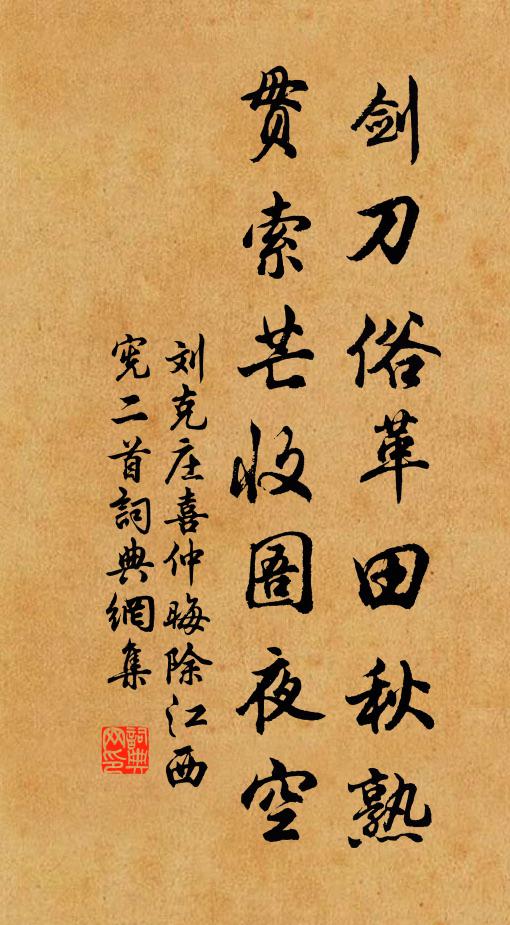 剑刀俗革田秋熟
贯索芒收圄夜空
刘克庄喜仲晦除江西
宪二首詞典網集
詞典
网印